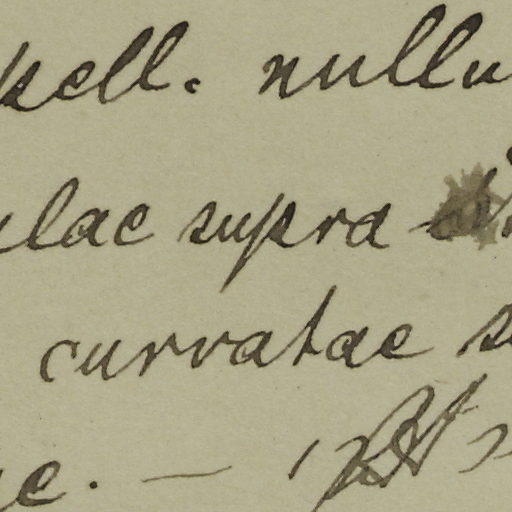 kell. nullu
lac supra
curvatae s
e. —